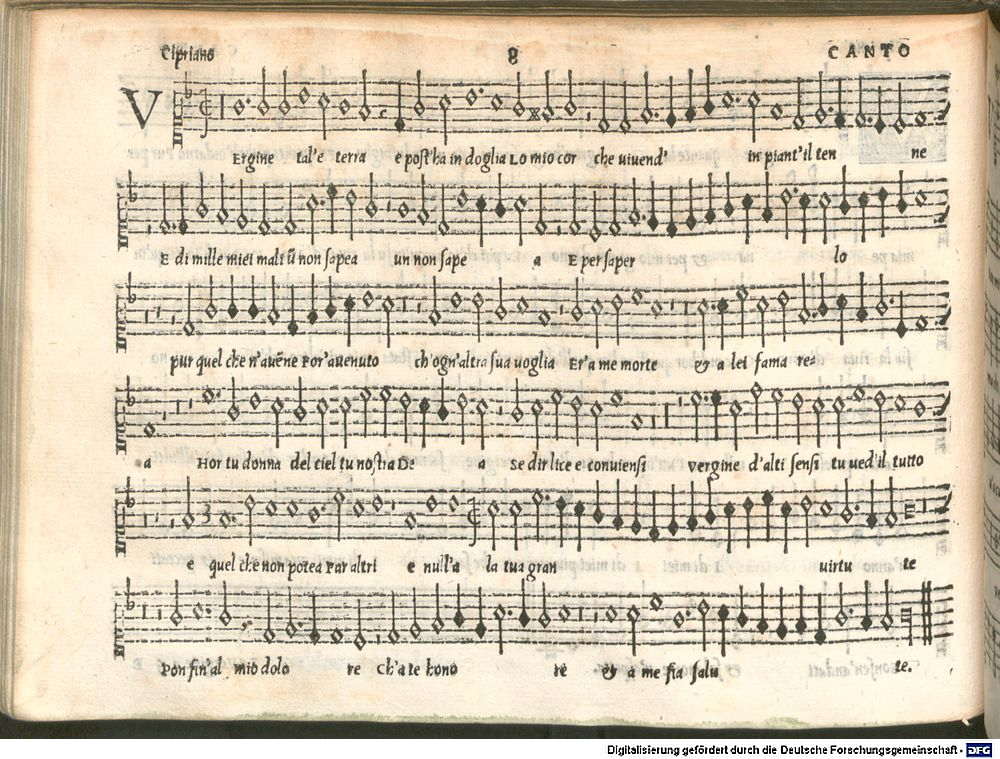 Cipriano 8 CANTO
V Ergine tal'e terra e post'ha in doglia Lo mio cor che uiuend' in piant'il ten ne
E di mille miei mali ũ non sapea un non sape a E per saper lo
pur quel che n'auẽne For'auenuto ch'ogn'altra sua uoglia Er'a me morte & a lei fama re-
a Hor tu donna del ciel tu nostra De a se dir lice e conuiensi vergine d'alti sensi tu ued'il tutto
e quel che non potea Far altri e null'a la tua gran uirtu te
Pon fin'al mio dolo re Ch'a te hono re & a me fia salu te.
Digitalisierung gefördert durch die Deutsche Forschungsgemeinschaft - DFG